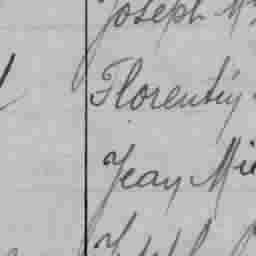 Joseph M
Florentin
Jean Mi